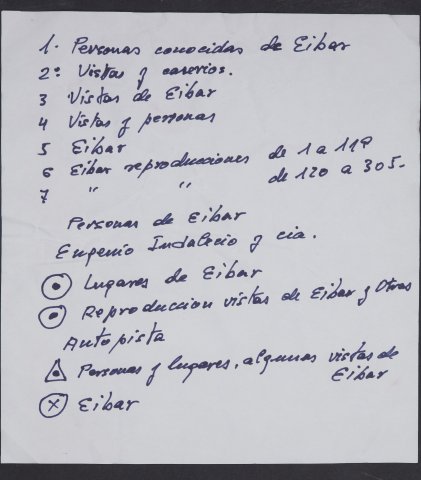 1. Personas conocidas de Eibar
2º Vistas y caserios.
3 Vistas de Eibar
4 Vistas y personas
5 Eibar
6 Eibar reproducciones de 1 a 119
7 " " de 120 a 305-
Personas de Eibar
Eugenio Indalecio y cia.
Lugares de Eibar
Reproduccion vistas de Eibar y Otras
Autopista
Personas y lugares, algunas vistas de
Eibar
Eibar